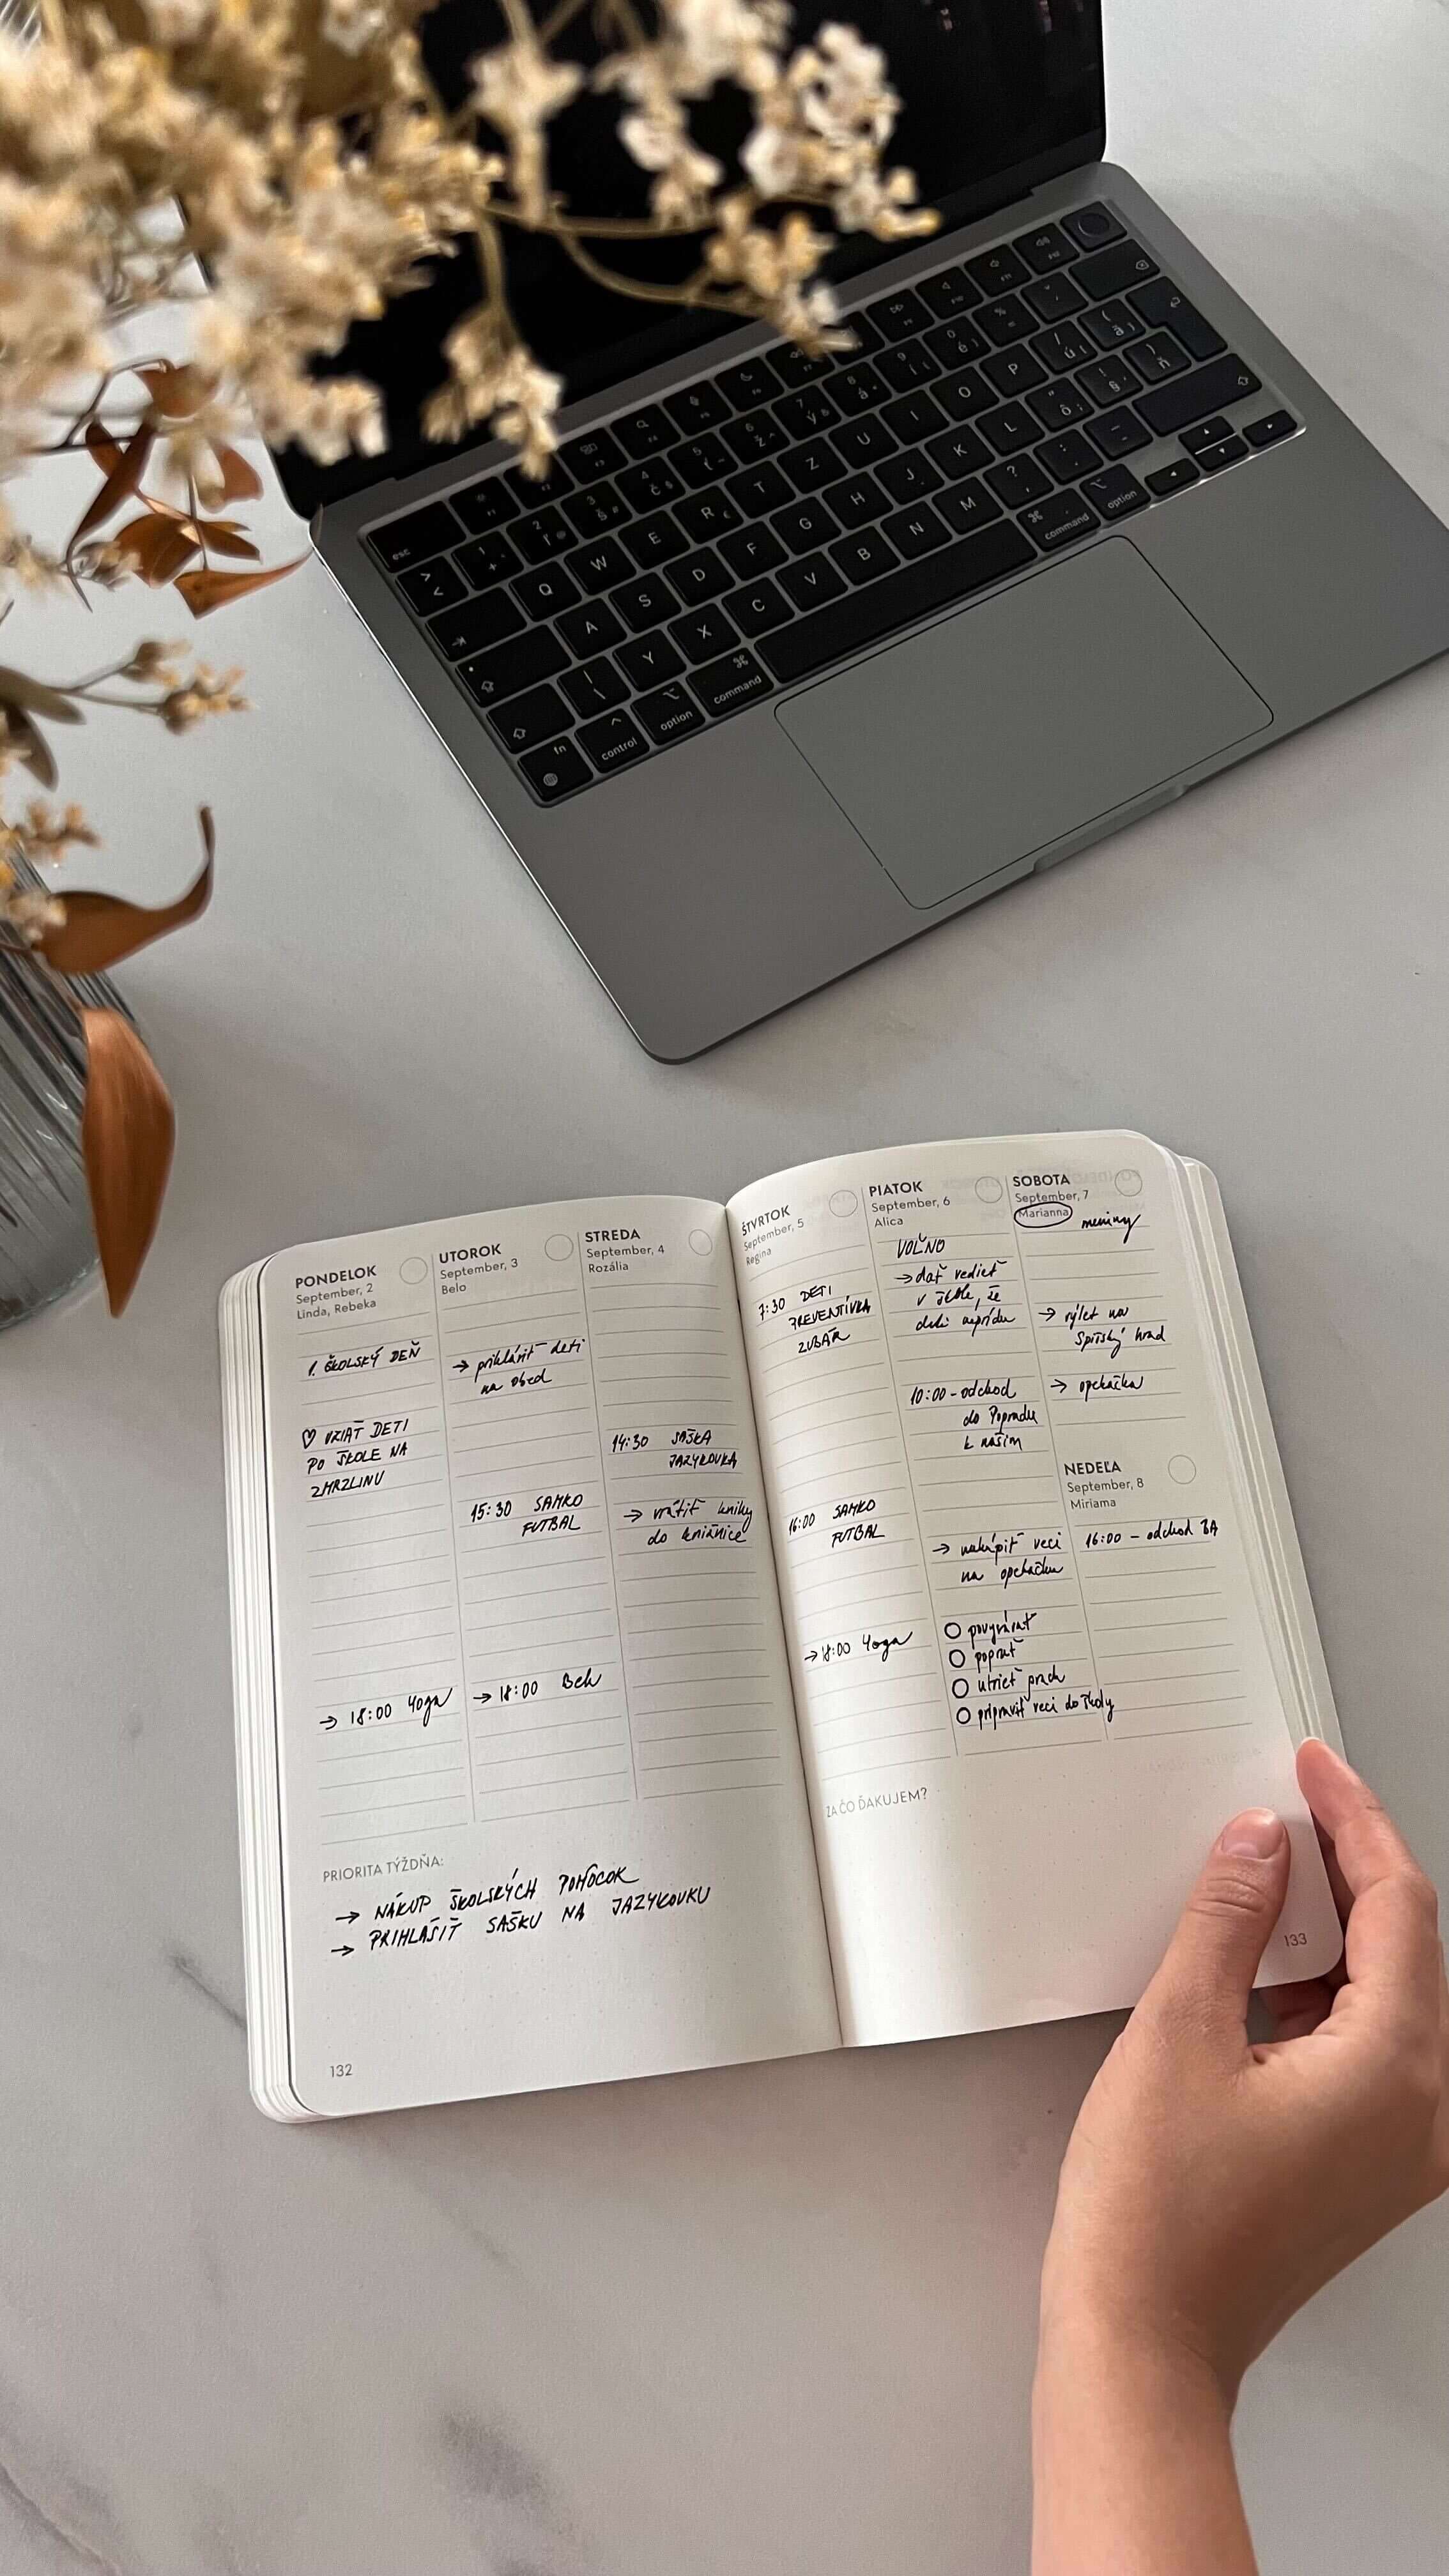 esc
fn
control
option
command
command
option
Q W E R T Z U I O P
A S D F G H J K L
Y X C V B N M
PONDELOK
September, 2
Linda, Rebeka
1. ŠKOLSKÝ DEŇ
♡ VZIAŤ DETI
PO ŠKOLE NA
ZMRZLINU
→ 18:00 Yoga
UTOROK
September, 3
Belo
→ prihlásiť deti
na obed
15:30 SAMKO
FUTBAL
→ 18:00 Beh
STREDA
September, 4
Rozália
14:30 SAŠKA
JAZYKOVKA
→ vrátiť knihy
do knižnice
PRIORITA TÝŽDŇA:
→ NÁKUP ŠKOLSKÝCH POMÔCOK
→ PRIHLÁSIŤ SAŠKU NA JAZYKOVKU
132
ŠTVRTOK
September, 5
Regina
7:30 DETI
PREVENTÍVKA
ZUBÁR
16:00 SAMKO
FUTBAL
→ 18:00 Yoga
PIATOK
September, 6
Alica
VOĽNO
→ dať vedieť
v škole, že
deti neprídu
10:00 - odchod
do Popradu
k našim
→ nakúpiť veci
na opekačku
○ povysávať
○ poprať
○ utrieť prach
○ pripraviť veci do školy
SOBOTA
September, 7
Marianna
meniny
→ výlet na
Spišský hrad
→ opekačka
NEDEĽA
September, 8
Miriama
16:00 - odchod BA
ZA ČO ĎAKUJEM?
133